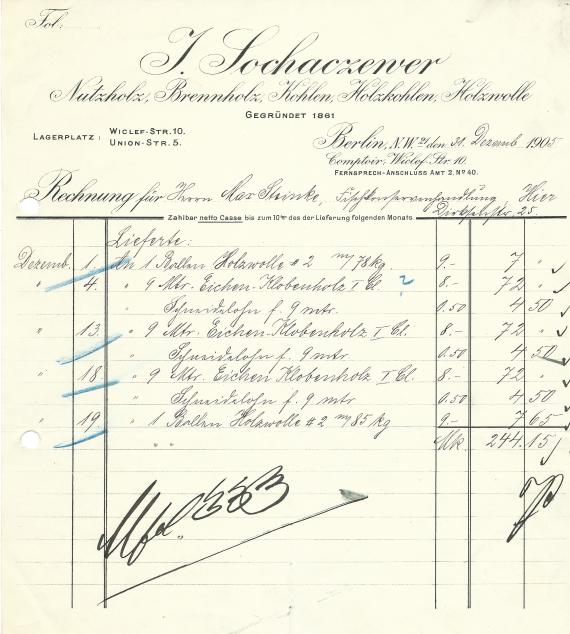 Fol.
J. Sochaczewer
Nutzholz, Brennholz, Kohlen, Holzkohlen, Holzwolle
GEGRÜNDET 1861
LAGERPLATZ: WICLEF-STR. 10.
UNION-STR. 5.
Berlin, N.W. 21 den 31. Dezemb. 1905
Comptoir: Wiclef-Str. 10.
FERNSPRECH-ANSCHLUSS AMT 2. No. 40.
Rechnung für Herrn Max Steinke, Fischkonservenhandlung, Hier
25.
Zahlbar netto Casse bis zum 10ten des der Lieferung folgenden Monats.
Lieferte:
Dezemb. 1. An 1 Ballen Holzwolle # 2 78 kg. 9.- 7 "
" 4. " 9 Mtr. Eichen-Klobenholz I Cl. ? 8.- 72 "
" Schneidelohn f. 9 mtr. 0.50 4 50
" 13. " 9 Mtr. Eichen-Klobenholz I Cl. 8.- 72 "
Schneidelohn f. 9 mtr. 0.50 4 50
" 18. " 9 Mtr. Eichen Klobenholz I Cl. 8.- 72 "
Schneidelohn f. 9 mtr. 0.50 4.50
" 19. " 1 Ballen Holzwolle # 2 85 kg 9.- 7 65
" " Mk. 244.15